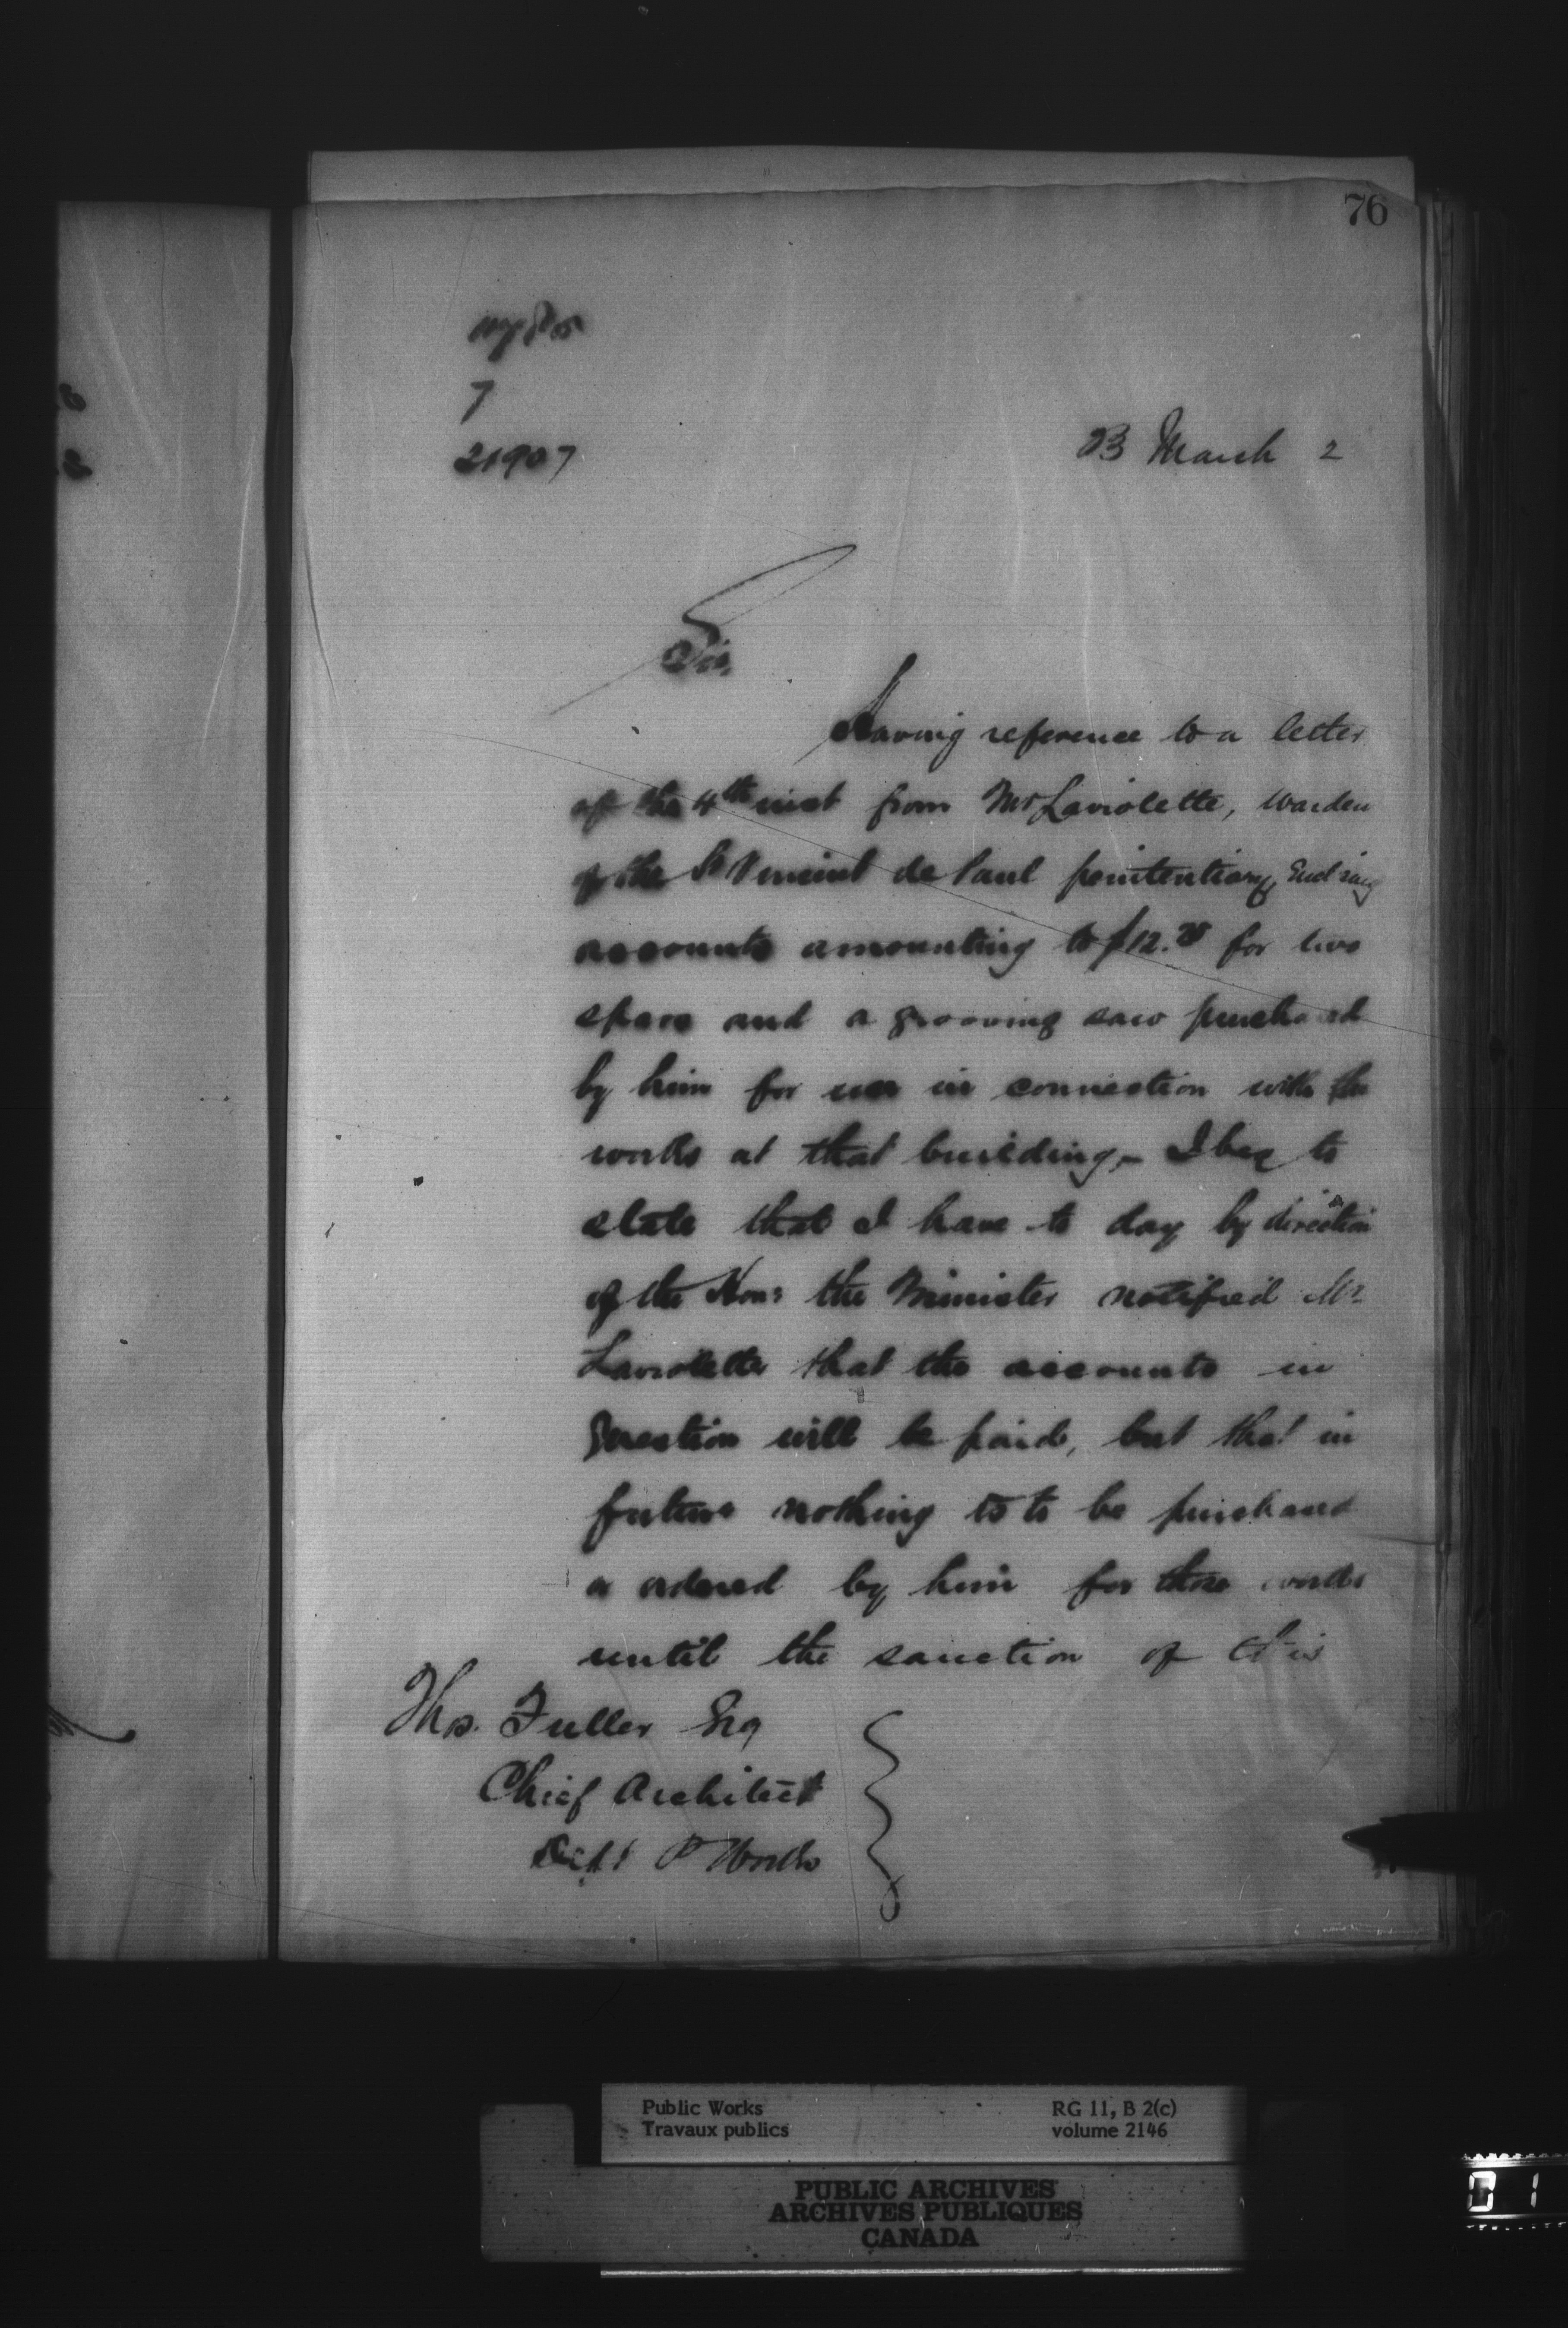 76
7
21907
23 March 2
Sir,
Having reference to a letter
of the 4th inst from Mr Laviolette, Warden
of the St Vincent de Paul penitentiary, Enclosing
accounts amounting to $12.75 for two
spars and a grooving saw purchased
by him for use in connection with the
works at that building,- I beg to
state that I have to day by direction
of the Hon: the Minister notified Mr
Laviolette that the accounts in
question will be paid, but that in
future nothing is to be purchased
or ordered by him for those works
until the sanction of this
Thos. Fuller Esq
Chief Architect
Dept P Works
Public Works
Travaux publics
RG 11, B 2(c)
volume 2146
PUBLIC ARCHIVES
ARCHIVES PUBLIQUES
CANADA
01